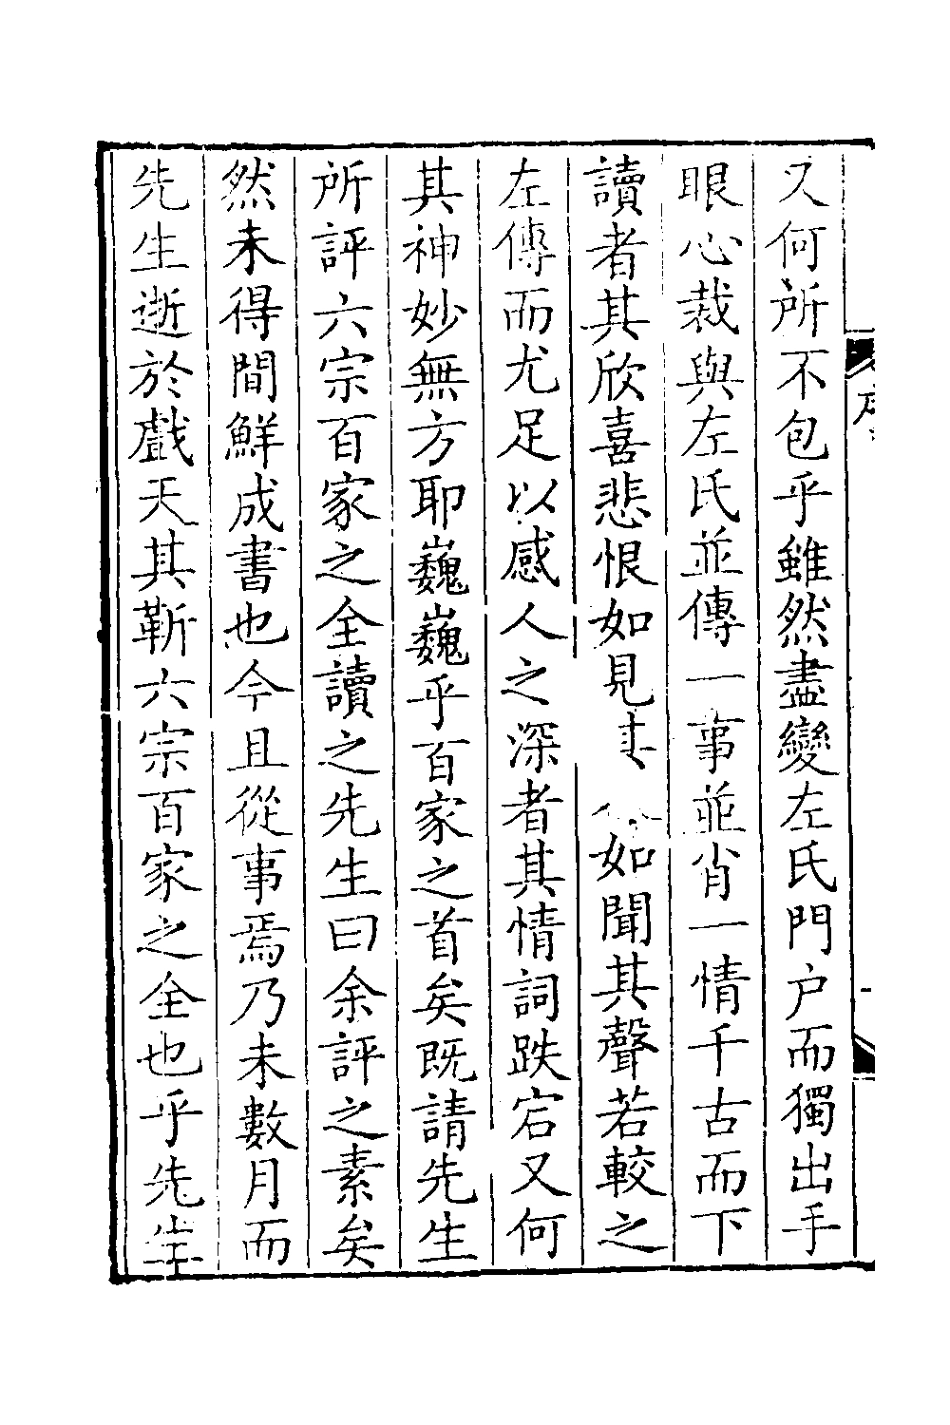 又何所不包乎雖然盡變左氏門户而獨出手
眼心裁與左氏並傳一事並肖一情千古而下
讀者其欣喜悲恨如見如聞其聲若較之
左傳而尤足以感人之深者其情詞跌宕又何
其神妙無方耶巍巍乎百家之首矣既請先生
所評六宗百家之全讀之先生曰余評之素矣
然未得間鮮成書也今且從事焉乃未數月而
先生逝於戲天其靳六宗百家之全也乎先生